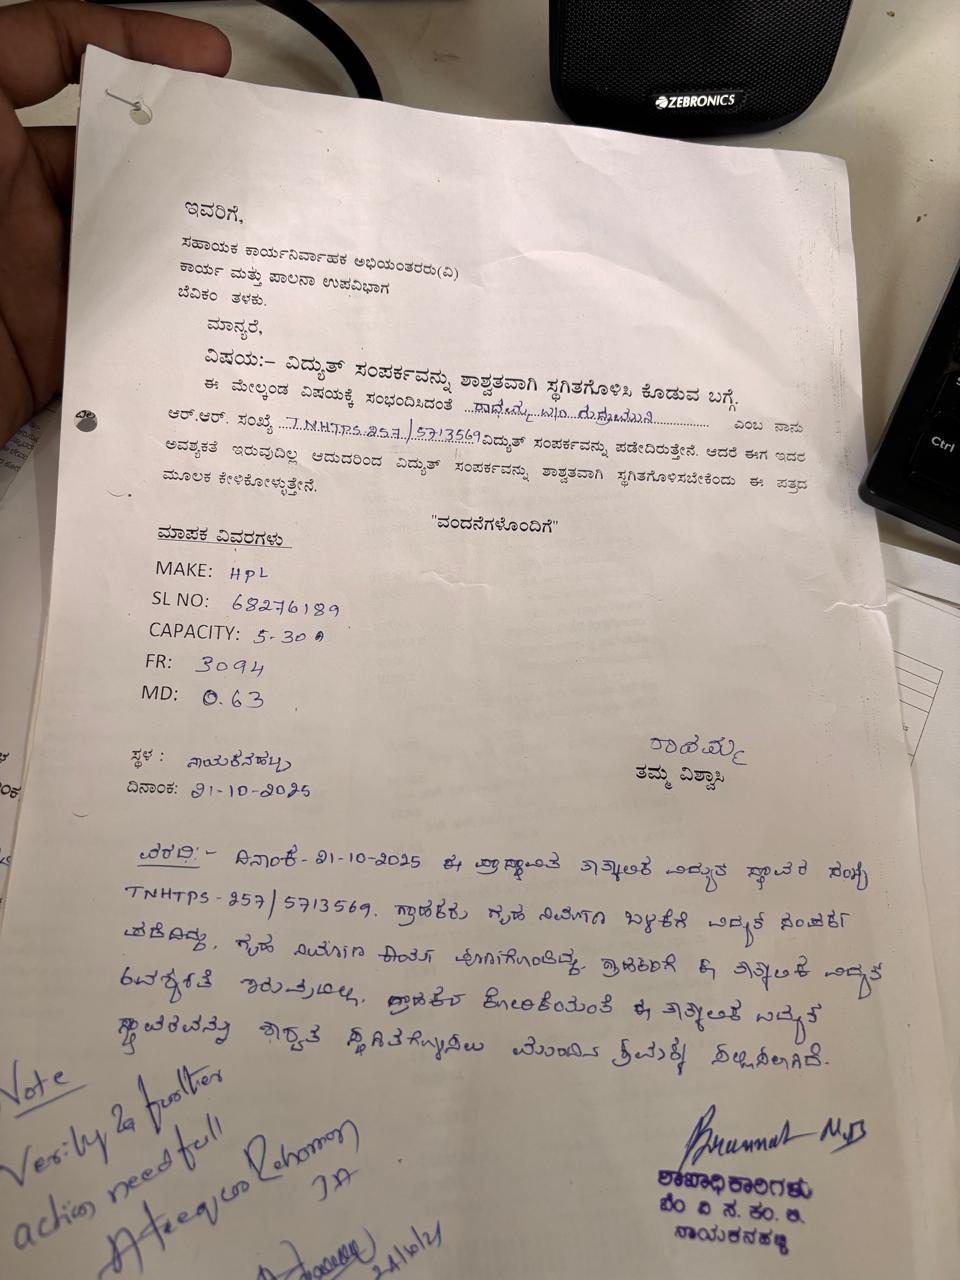 ZEBRONICS
ಇವರಿಗೆ,
ಸಹಾಯಕ ಕಾರ್ಯನಿರ್ವಾಹಕ ಅಭಿಯಂತರರು(ವಿ)
ಕಾರ್ಯ ಮತ್ತು ಪಾಲನಾ ಉಪವಿಭಾಗ
ಬೆವಿಕಂ ತಳಕು.
ಮಾನ್ಯರೆ,
ವಿಷಯ:– ವಿದ್ಯುತ್ ಸಂಪರ್ಕವನ್ನು ಶಾಶ್ವತವಾಗಿ ಸ್ಥಗಿತಗೊಳಿಸಿ ಕೊಡುವ ಬಗ್ಗೆ.
ಈ ಮೇಲ್ಕಂಡ ವಿಷಯಕ್ಕೆ ಸಂಭಂದಿಸಿದಂತೆ ಎಂಬ ನಾನು
ಆರ್.ಆರ್. ಸಂಖ್ಯೆ TNHTPS 257/5713569 ವಿದ್ಯುತ್ ಸಂಪರ್ಕವನ್ನು ಪಡೇದಿರುತ್ತೇನೆ. ಆದರೆ ಈಗ ಇದರ
ಅವಶ್ಯಕತೆ ಇರುವುದಿಲ್ಲ ಆದುದರಿಂದ ವಿದ್ಯುತ್ ಸಂಪರ್ಕವನ್ನು ಶಾಶ್ವತವಾಗಿ ಸ್ಥಗಿತಗೊಳಿಸಬೇಕೆಂದು ಈ ಪತ್ರದ
ಮೂಲಕ ಕೇಳಿಕೋಳ್ಳುತ್ತೇನೆ.
"ವಂದನೆಗಳೊಂದಿಗೆ"
ಮಾಪಕ ವಿವರಗಳು
MAKE: HPL
SL NO: 68276189
CAPACITY: 5-30
FR: 3094
MD: 0.63
ಸ್ಥಳ : ನಾಯಕನಹಳ್ಳಿ
ದಿನಾಂಕ: 21-10-2025
ತಮ್ಮ ವಿಶ್ವಾಸಿ
ವರದಿ:- ದಿನಾಂಕ-21-10-2025 ಈ ಪ್ರಾಸ್ತಾವಿತ ತಾತ್ಕಾಲಿಕ ವಿದ್ಯುತ ಸ್ಥಾವರ ಸಂಖ್ಯೆ
TNHTPS-257/5713569. ಗ್ರಾಹಕರು ಗೃಹ ನಿರ್ಮಾಣ ಬಳಕೆಗೆ ವಿದ್ಯುತ ಸಂಪರ್ಕ
ಪಡೆದಿದ್ದು, ಗೃಹ ನಿರ್ಮಾಣ ಗ್ರಾಹಕರಿಗೆ ಈ ತಾತ್ಕಾಲಿಕ ವಿದ್ಯುತ
ಅವಶ್ಯಕತೆ ಇರುವುದಿಲ್ಲ. ಗ್ರಾಹಕರ ಕೋರಿಕೆಯಂತೆ ಈ ತಾತ್ಕಾಲಿಕ ವಿದ್ಯುತ
ಸ್ಥಾವರವನ್ನು ಶಾಶ್ವತ ಮುಂದಿನ ಕ್ರಮಕ್ಕೆ ಸಲ್ಲಿಸಲಾಗಿದೆ.
Verify & further
action need full
Ateequr Rehaman
JA
ಶಾಖಾಧಿಕಾರಿಗಳು
ಬೆಂ ವಿ ಸ. ಕಂ. ಲಿ.
ನಾಯಕನಹಟ್ಟಿ
Ctrl